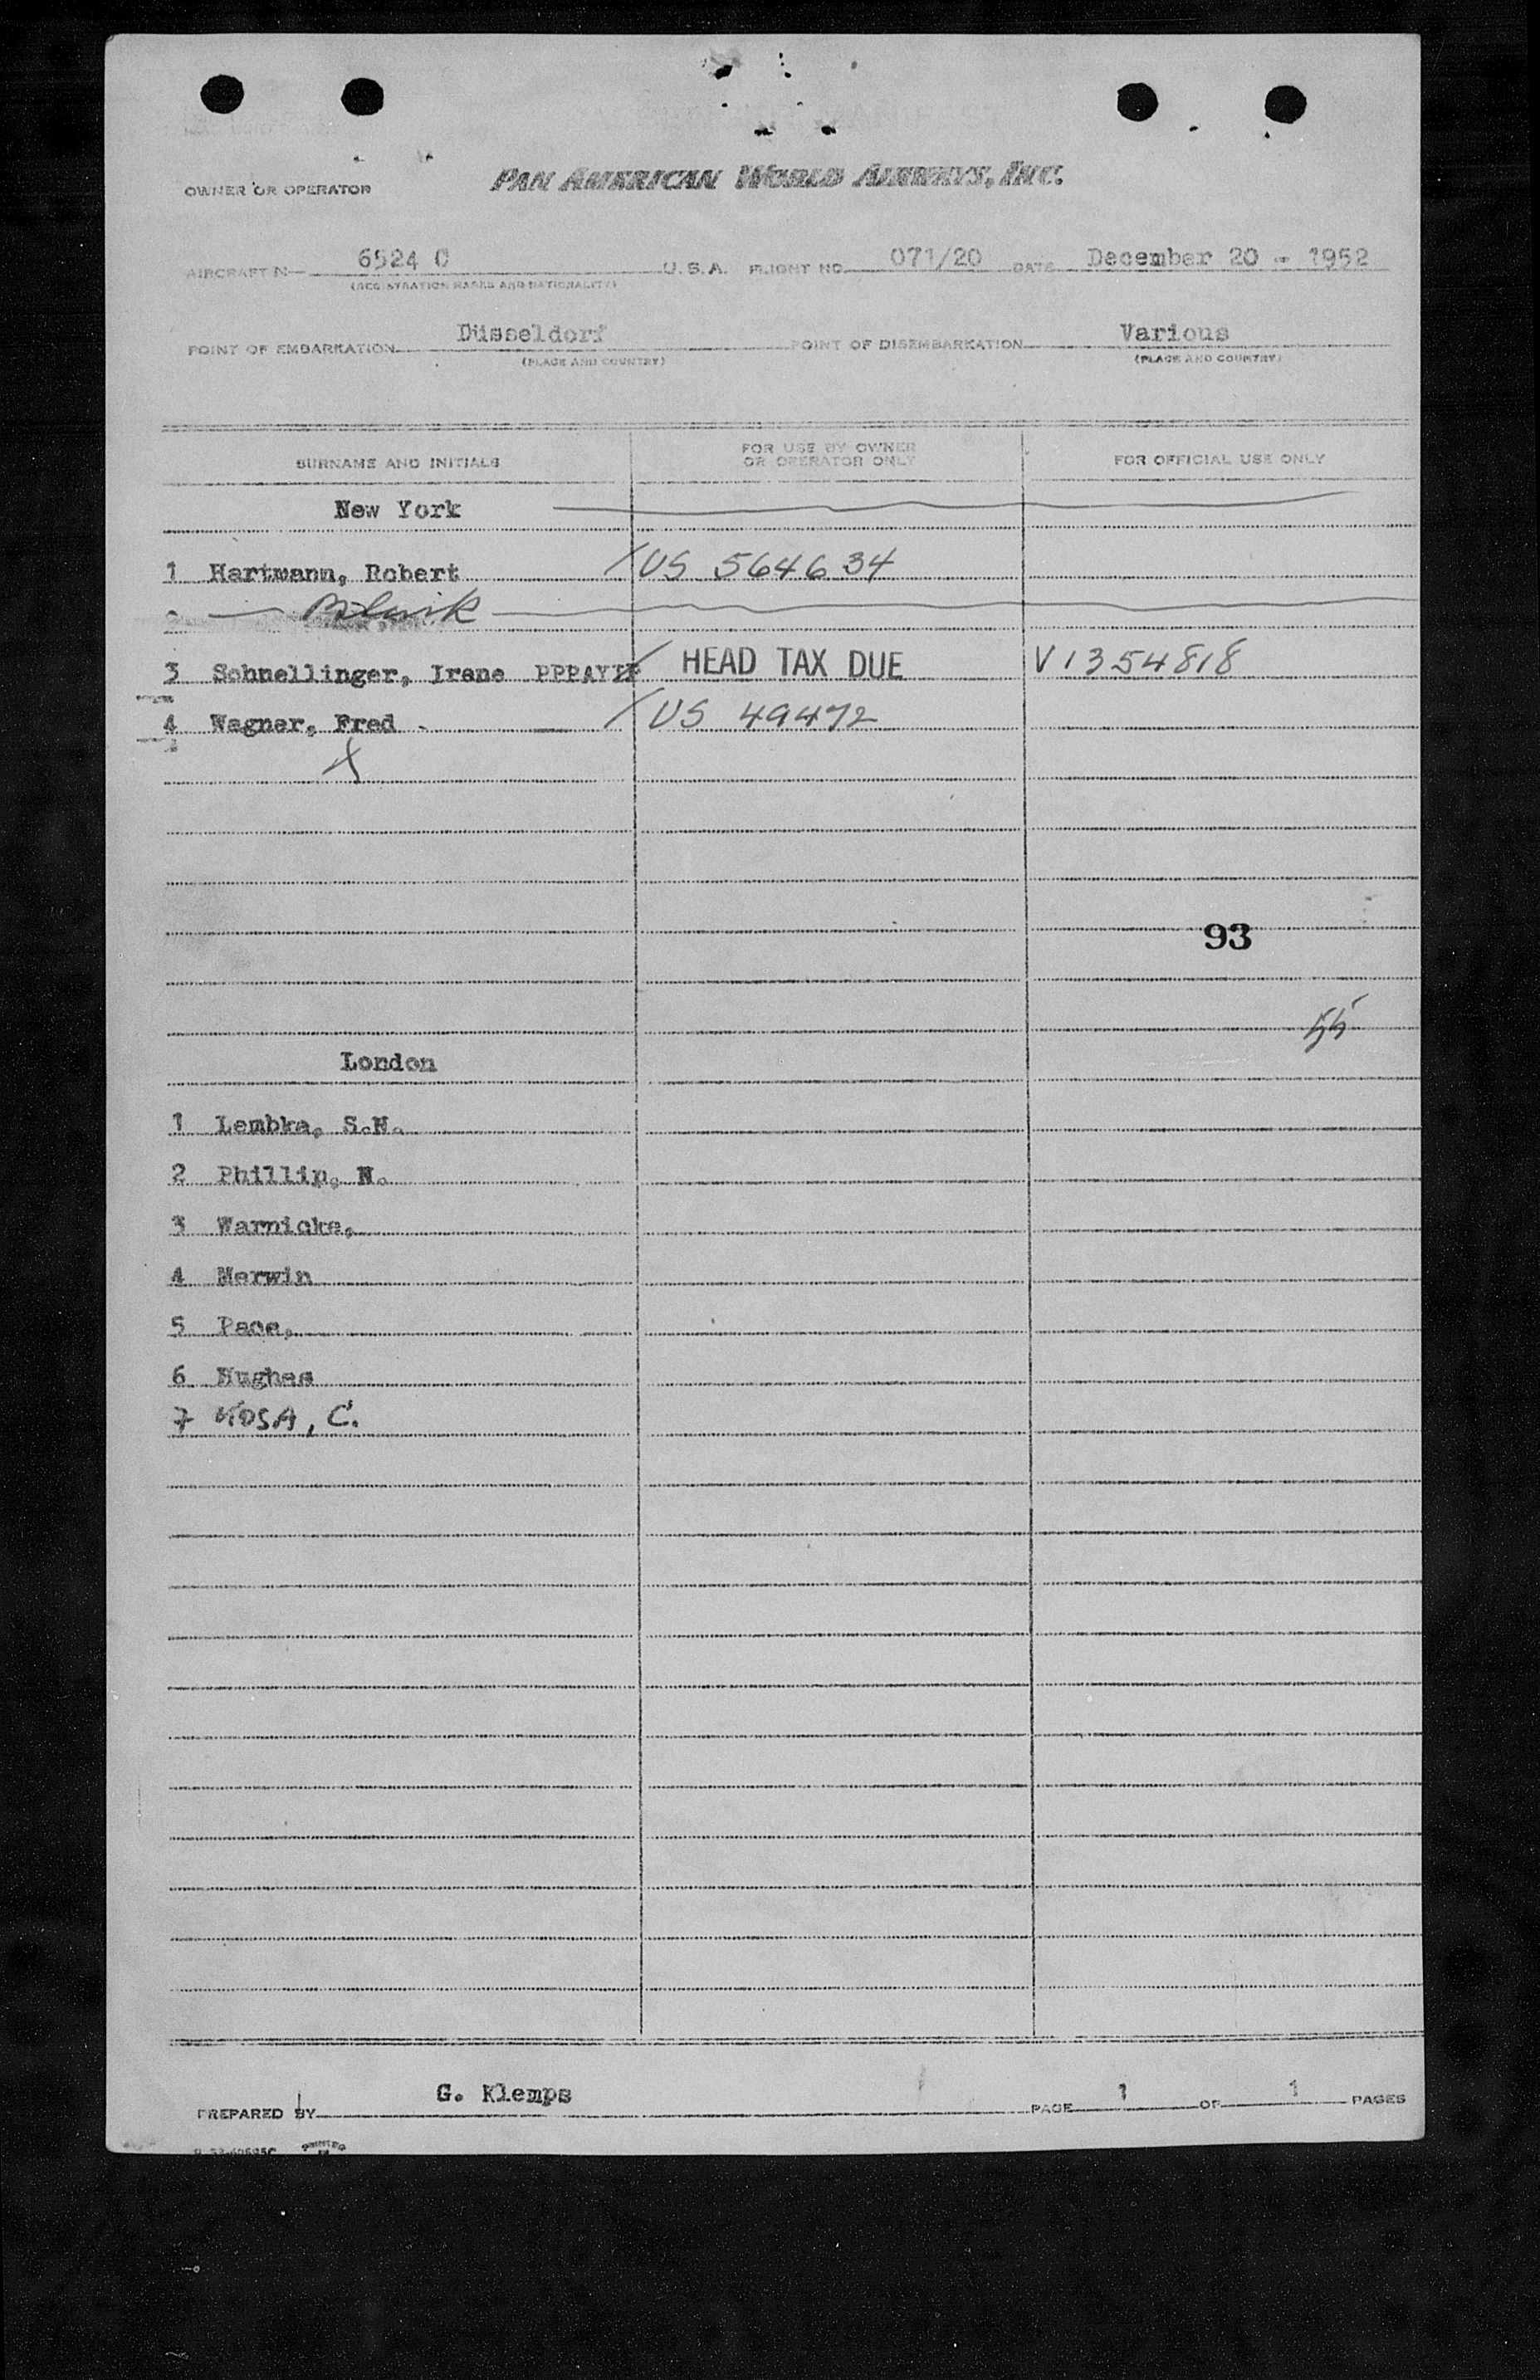 OWNER OR OPERATOR PAN AMERICAN WORLD AIRWAYS, INC.
AIRCRAFT N 6524 C U.S.A. FLIGHT NO. 071/20 DATE December 20 - 1952
(REGISTRATION MARKS AND NATIONALITY)
POINT OF EMBARKATION Düsseldorf POINT OF DISEMBARKATION Various
(PLACE AND COUNTRY) (PLACE AND COUNTRY)
SURNAME AND INITIALS FOR USE BY OWNER OR OPERATOR ONLY FOR OFFICIAL USE ONLY
New York
1 Hartmann, Robert US 564634
3 Schnellinger, Irene HEAD TAX DUE V1354818
4 Wagner, Fred US 49472
X
93
55
London
1 Lembke, S.H.
2 Phillip, N.
3 Warnicke,
4 Merwin
5 Pace,
6 Hughes
7 KOSA, C.
G. Klemps
PREPARED BY PAGE 1 OF 1 PAGES